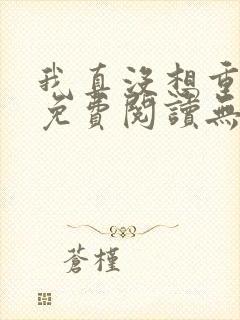 我真沒想重
免費閱讀無
蒼槿